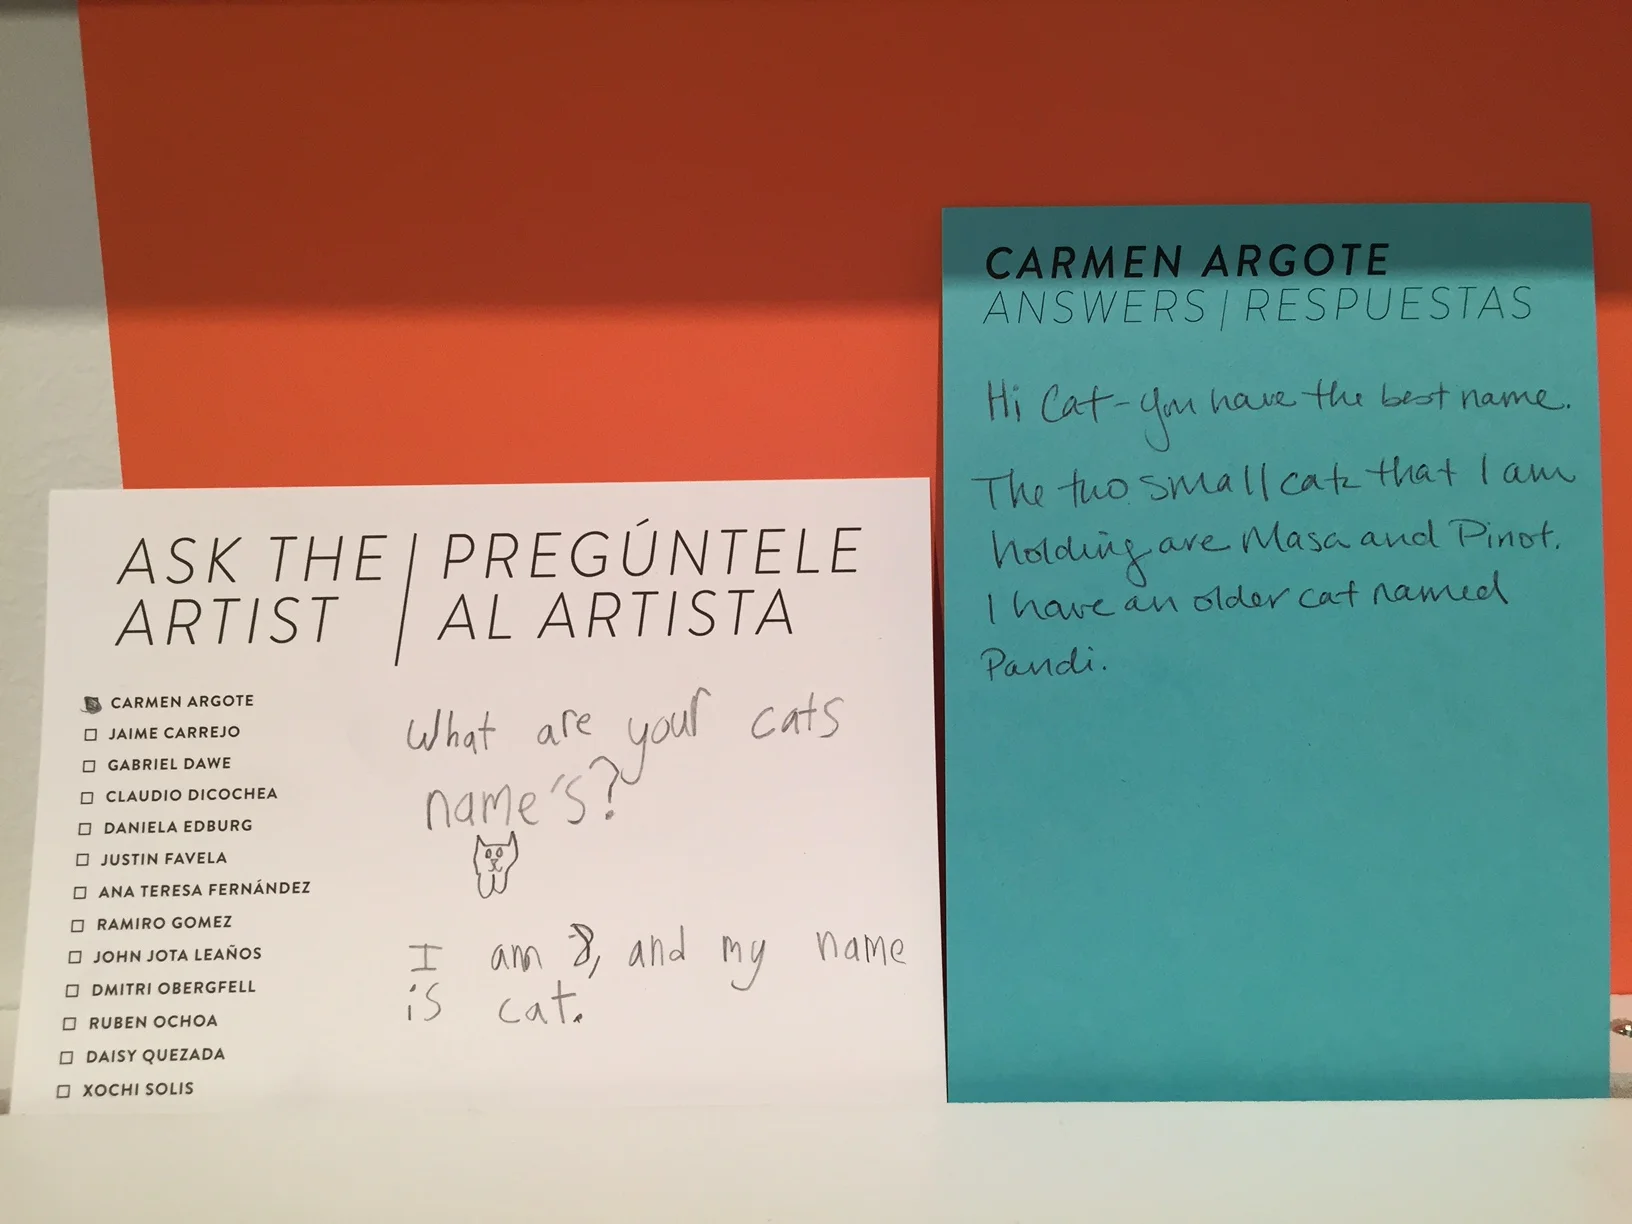 ASK THE ARTIST
PREGÚNTELE AL ARTISTA
CARMEN ARGOTE
JAIME CARREJO
GABRIEL DAWE
CLAUDIO DICOCHEA
DANIELA EDBURG
JUSTIN FAVELA
ANA TERESA FERNÁNDEZ
RAMIRO GOMEZ
JOHN JOTA LEAÑOS
DMITRI OBERGFELL
RUBEN OCHOA
DAISY QUEZADA
XOCHI SOLIS
What are your cats
name's?
I am 8, and my name
is cat.
CARMEN ARGOTE
ANSWERS | RESPUESTAS
Hi Cat - you have the best name.
The two small cats that I am
holding are Masa and Pinot.
I have an older cat named
Pandi.